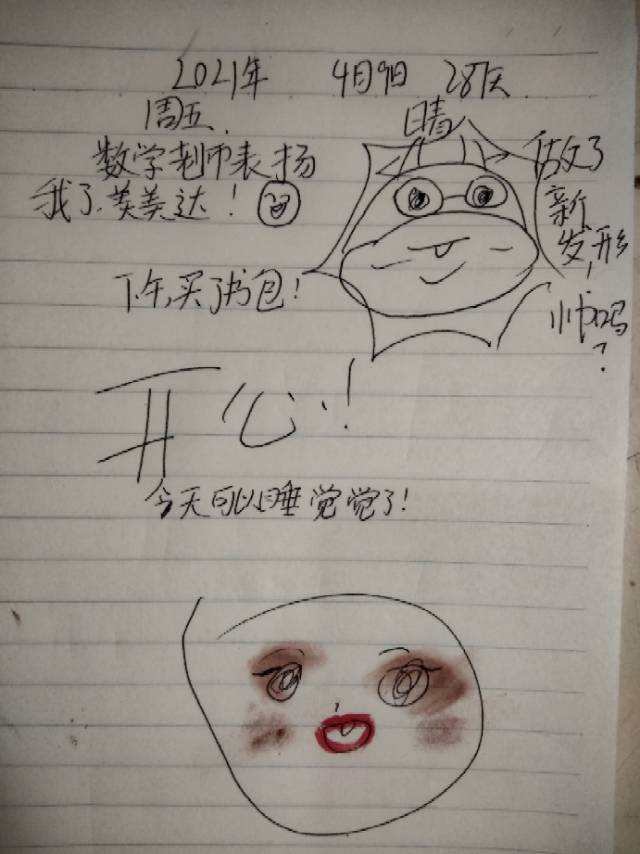 2021年 4月9日 28天
周五 晴
数学老师表扬
我了,美美达!
下午,买了书包!
做了
新
发形
!
帅吗
?
开心!
今天可以睡觉觉了!